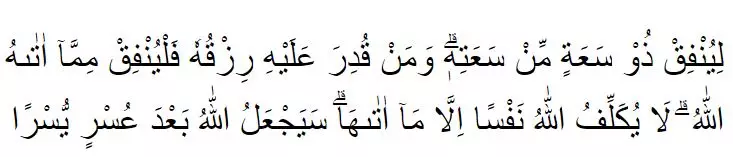 لِيُنْفِقْ ذُوْ سَعَةٍ مِّنْ سَعَتِهٖۗ وَمَنْ قُدِرَ عَلَيْهِ رِزْقُهٗ فَلْيُنْفِقْ مِمَّآ اٰتٰىهُ
اللّٰهُ ۗ لَا يُكَلِّفُ اللّٰهُ نَفْسًا اِلَّا مَآ اٰتٰىهَاۗ سَيَجْعَلُ اللّٰهُ بَعْدَ عُسْرٍ يُّسْرًا